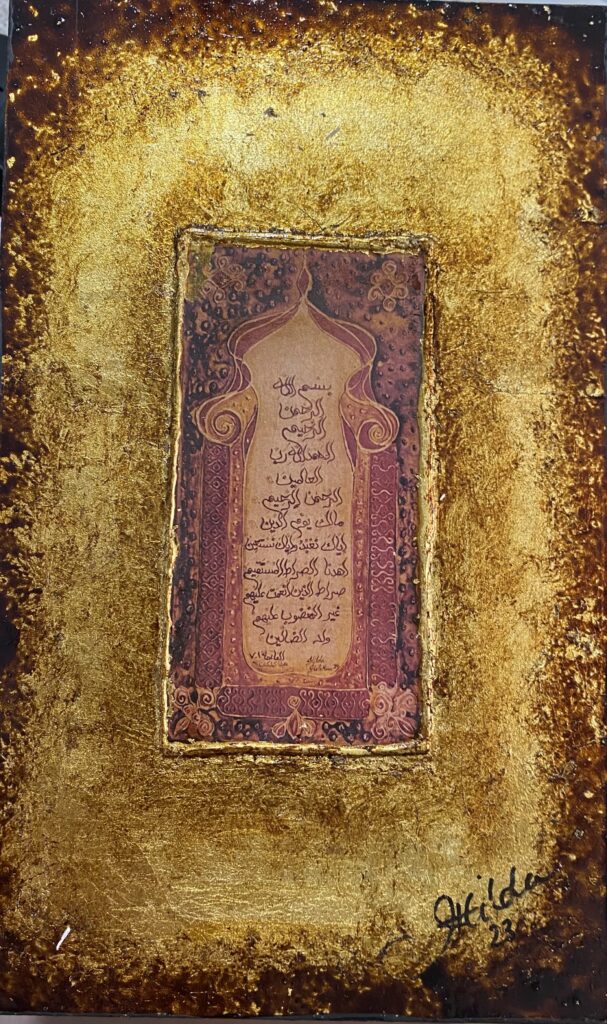 بسم الله
الرحمن
الرحيم
الحمد لله رب
العالمين
الرحمن الرحيم
مالك يوم الدين
إياك نعبد وإياك نستعين
اهدنا الصراط المستقيم
صراط الذين أنعمت عليهم
غير المغضوب عليهم
ولا الضالين
الفاتحة ١-٧
Hilda
23